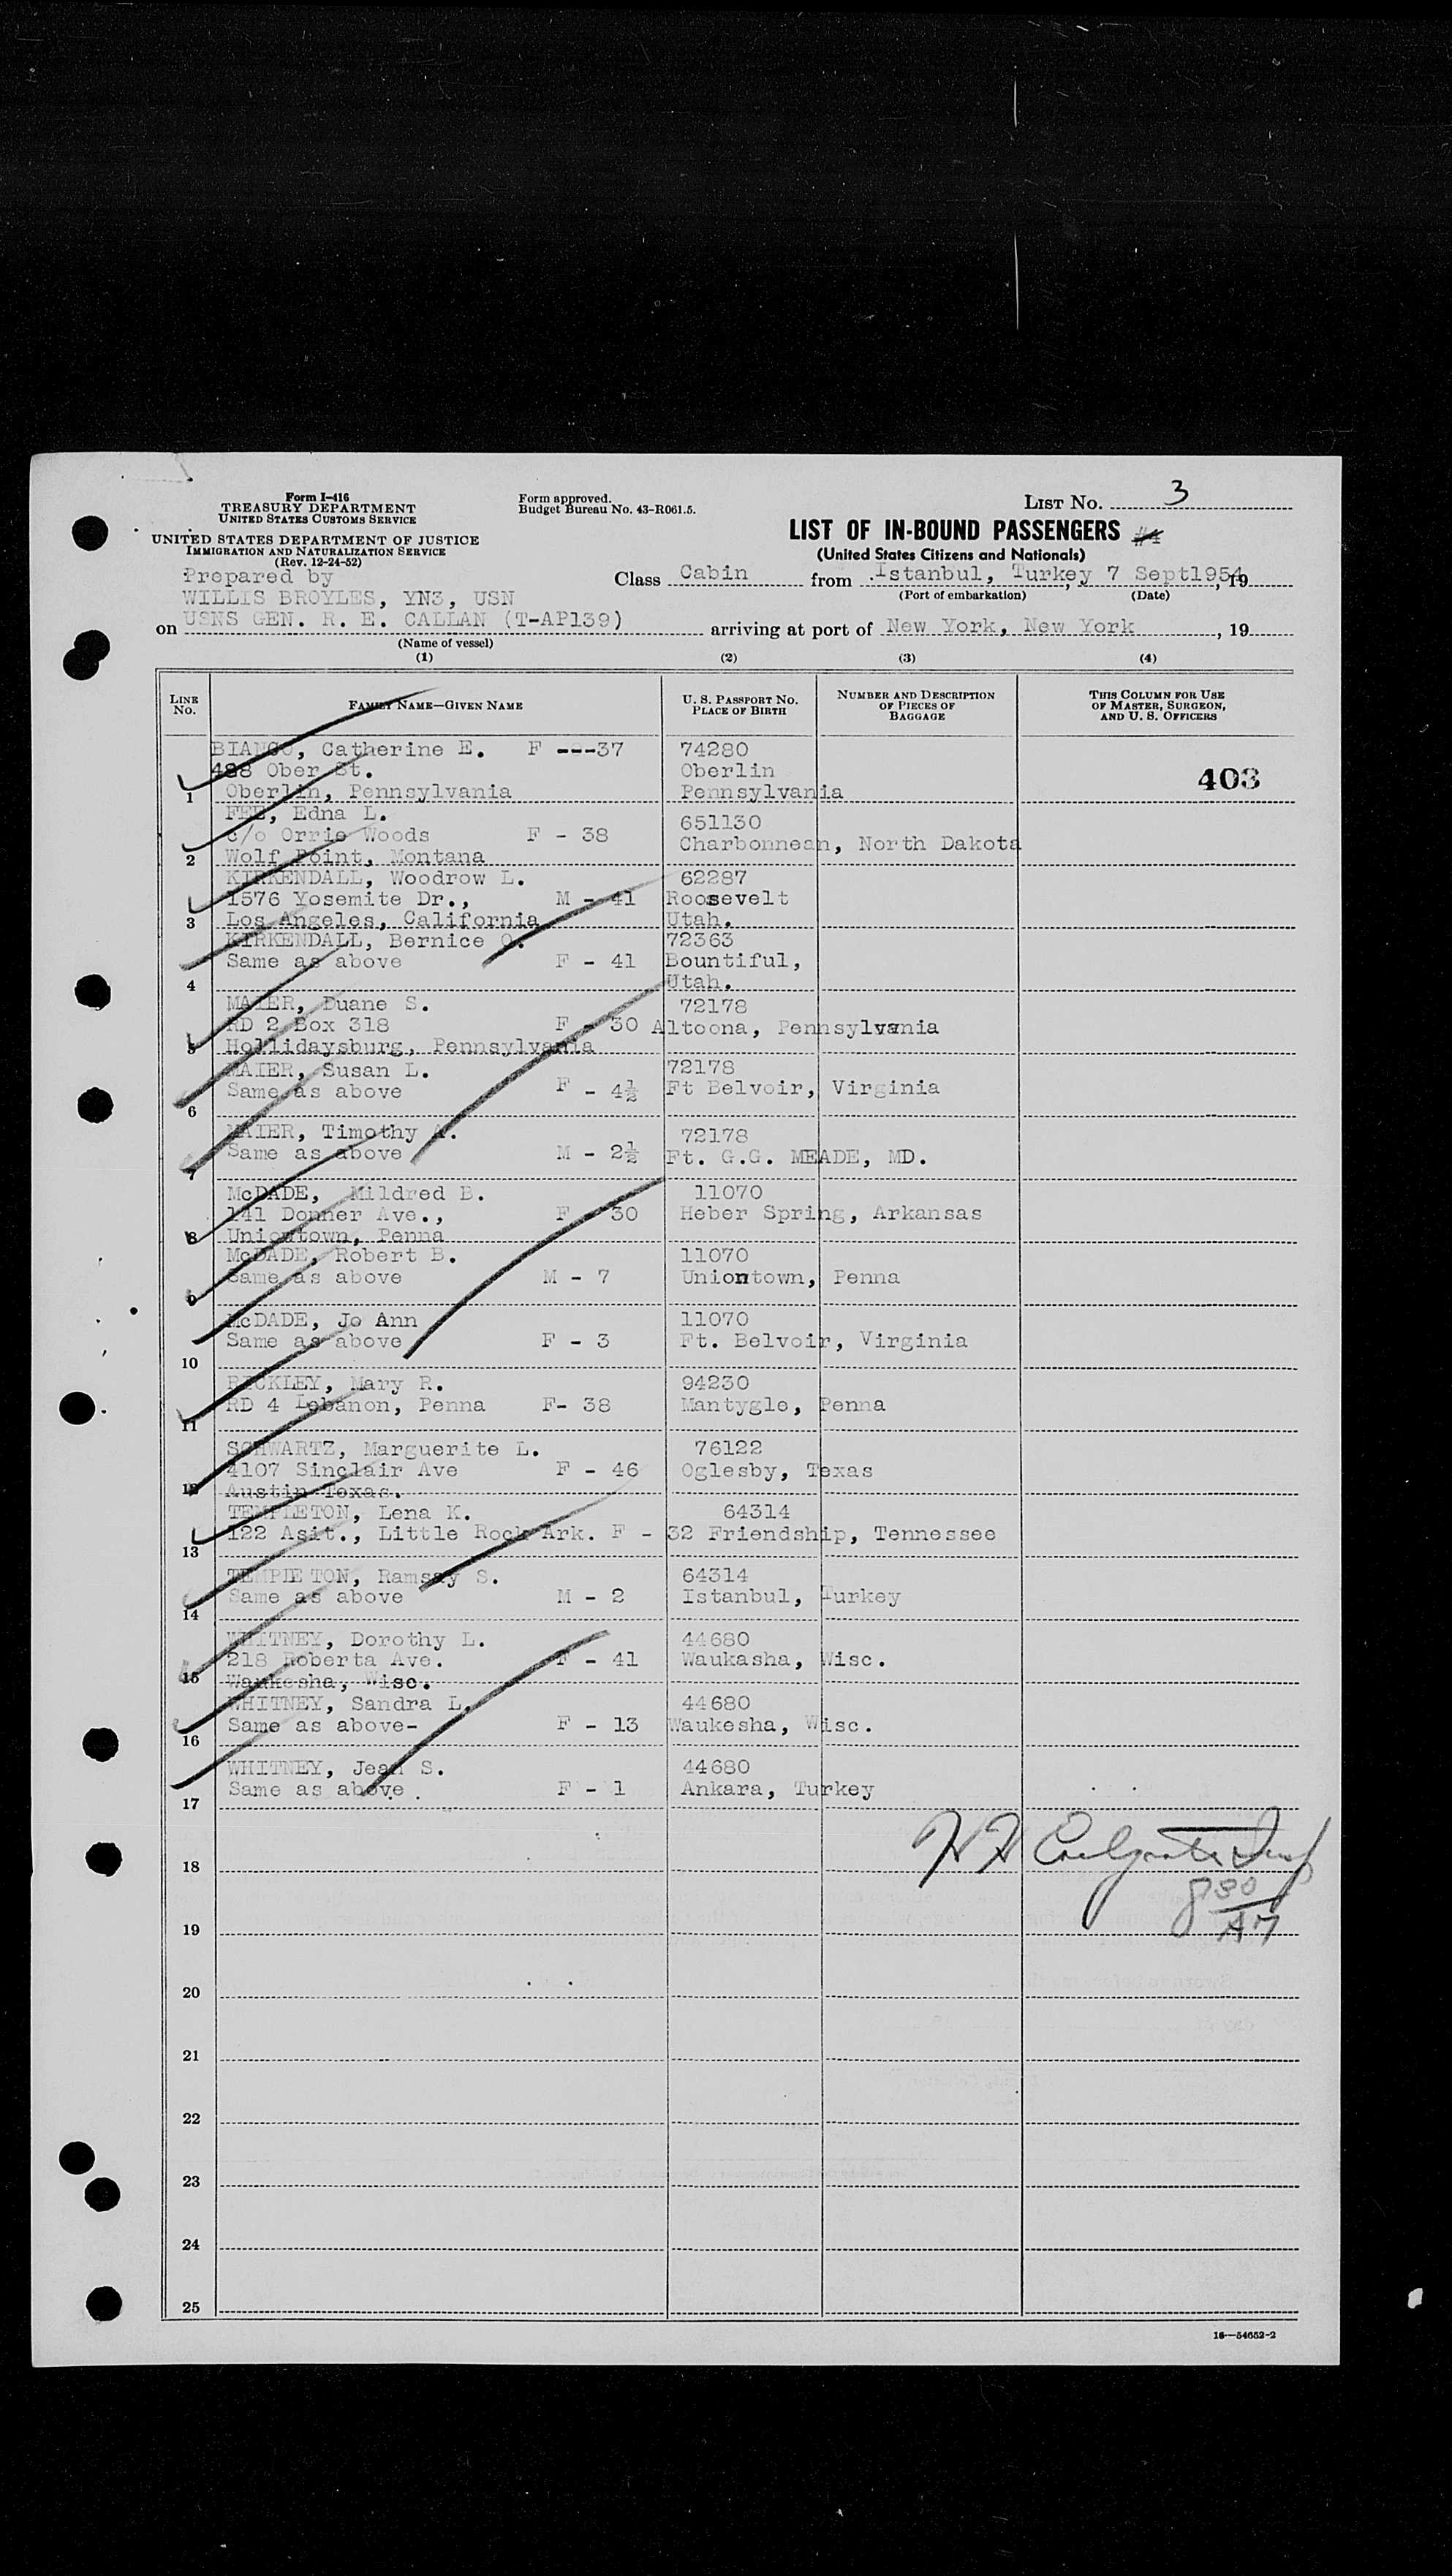 Form I-416
TREASURY DEPARTMENT
UNITED STATES CUSTOMS SERVICE
UNITED STATES DEPARTMENT OF JUSTICE
IMMIGRATION AND NATURALIZATION SERVICE
(Rev. 12-24-52)
Form approved.
Budget Bureau No. 43-R061.5.
LIST No. 3
LIST OF IN-BOUND PASSENGERS #4
(United States Citizens and Nationals)
Prepared by
WILLIS BROYLES, YN3, USN
Class Cabin from Istanbul, Turkey 7 Sept1954, 19
(Port of embarkation) (Date)
on USNS GEN. R. E. CALLAN (T-AP139) arriving at port of New York, New York, 19
(Name of vessel)
(1) (2) (3) (4)
LINE No. FAMILY NAME—GIVEN NAME U. S. PASSPORT No. PLACE OF BIRTH NUMBER AND DESCRIPTION OF PIECES OF BAGGAGE THIS COLUMN FOR USE OF MASTER, SURGEON, AND U. S. OFFICERS
BIANCO, Catherine E. F ---37 74280
488 Ober St. Oberlin 403
1 Oberlin, Pennsylvania Pennsylvania
FEE, Edna L. 651130
c/o Orrie Woods F - 38 Charbonnean, North Dakota
2 Wolf Point, Montana
KIRKENDALL, Woodrow L. 62287
1576 Yosemite Dr., M - 41 Roosevelt
3 Los Angeles, California Utah.
KIRKENDALL, Bernice O. 72363
Same as above F - 41 Bountiful,
4 Utah.
MAIER, Duane S. 72178
RD 2 Box 318 F - 30 Altoona, Pennsylvania
5 Hollidaysburg, Pennsylvania
MAIER, Susan L. 72178
Same as above F - 4½ Ft Belvoir, Virginia
6
MAIER, Timothy A. 72178
Same as above M - 2½ Ft. G.G. MEADE, MD.
7
McDADE, Mildred B. 11070
141 Donner Ave., F - 30 Heber Spring, Arkansas
8 Uniontown, Penna
McDADE, Robert B. 11070
Same as above M - 7 Uniontown, Penna
9
McDADE, Jo Ann 11070
Same as above F - 3 Ft. Belvoir, Virginia
10
RICKLEY, Mary R. 94230
RD 4 Lebanon, Penna F- 38 Mantygle, Penna
11
SCHWARTZ, Marguerite L. 76122
4107 Sinclair Ave F - 46 Oglesby, Texas
12 Austin Texas.
TEMPLETON, Lena K. 64314
122 Asit., Little Rock Ark. F - 32 Friendship, Tennessee
13
TEMPLE TON, Ramsay S. 64314
Same as above M - 2 Istanbul, Turkey
14
WHITNEY, Dorothy L. 44680
218 Roberta Ave. F - 41 Waukasha, Wisc.
15 Waukesha, Wisc.
WHITNEY, Sandra L. 44680
Same as above- F - 13 Waukesha, Wisc.
16
WHITNEY, Jean S. 44680
Same as above F - 1 Ankara, Turkey
17
18
830
AM
19
20
21
22
23
24
25
16—54652-2